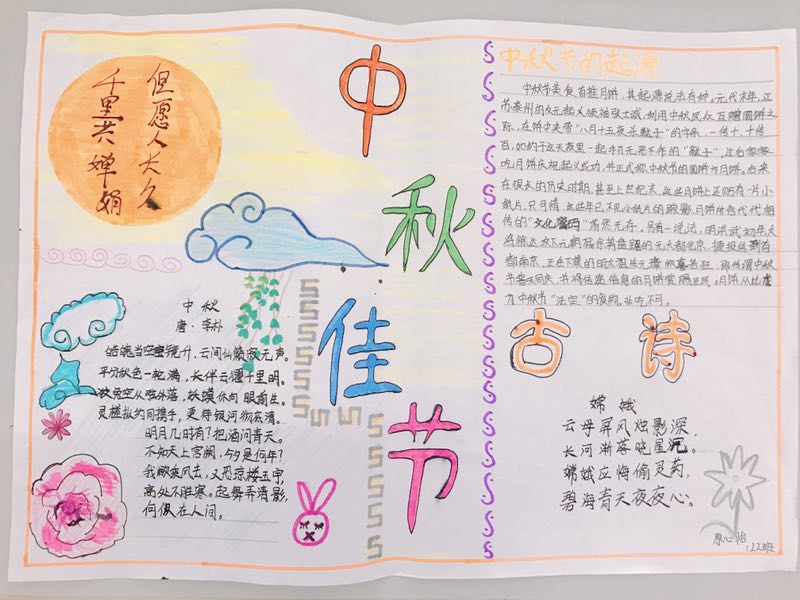 但愿人长久
千里共婵娟
中秋佳节
中秋节的起源
中秋节美食首推月饼,其起源说法有种。元代末年,江
苏泰州的反元起义领袖张士诚,利用中秋民众互赠圆饼之
际,在饼中夹带"八月十五夜杀鞑子"的字条,一传十、十传
百,如约于这天夜里一起手刃无恶不作的"鞑子",
吃月饼庆祝起义成功,并正式称中秋节的圆饼为月饼。后来
在很长的历史时期,甚至上世纪末,这些月饼上还贴有一片小
纸片,只可惜,这些年已不见小纸片的踪影,月饼所包代代相
传的"文化密码"荡然无存。另有一说法,明洪武初年大
将徐达攻下元朝残余势力盘踞的元大都北京,捷报传到首
都南京,正在下棋的明太祖朱元璋欣喜若狂,即传谕中秋
节普天同庆,并将
月饼从此
为中秋节"法定"的食物,非吃不可。
古诗
嫦娥
云母屏风烛影深,
长河渐落晓星沉。
嫦娥应悔偷灵药,
碧海青天夜夜心。
中秋
唐·李朴
皓魄当空宝镜升,云间仙籁寂无声。
平分秋色一轮满,长伴云衢千里明。
狡兔空从弦外落,妖蟆休向眼前生。
灵槎拟约同携手,更待银河彻底清。
明月几时有?把酒问青天。
不知天上宫阙,今夕是何年?
我欲乘风去,又恐琼楼玉宇,
高处不胜寒。起舞弄清影,
何似在人间。
原心怡
122班